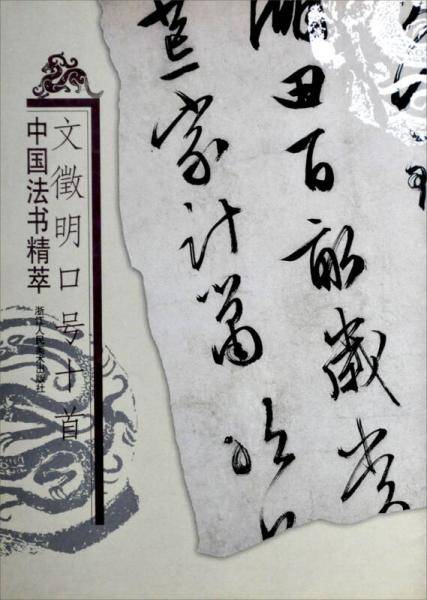 田百畝歲常
荒家計蕭
文徵明口号十首
中国法书精萃
浙江人民美术出版社